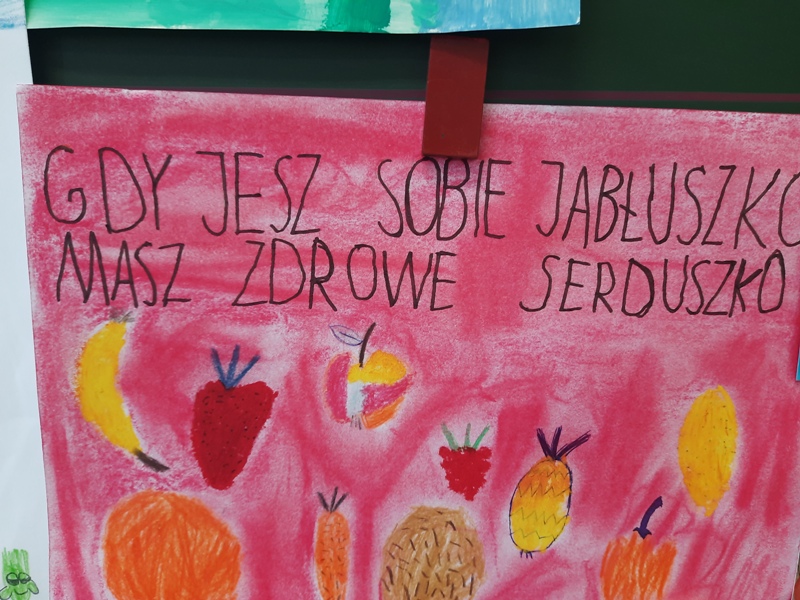 GDY JESZ SOBIE JABŁUSZKO
MASZ ZDROWE SERDUSZKO